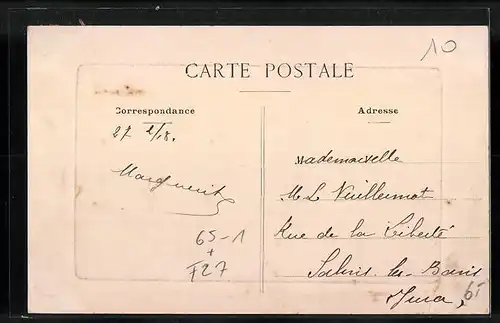 10
CARTE POSTALE
Correspondance
Adresse
27 2/18.
Marguerite
65-1
+
F27
Mademoiselle
M L Vuillemot
Rue de la Liberté
Salins les Bains
Jura,